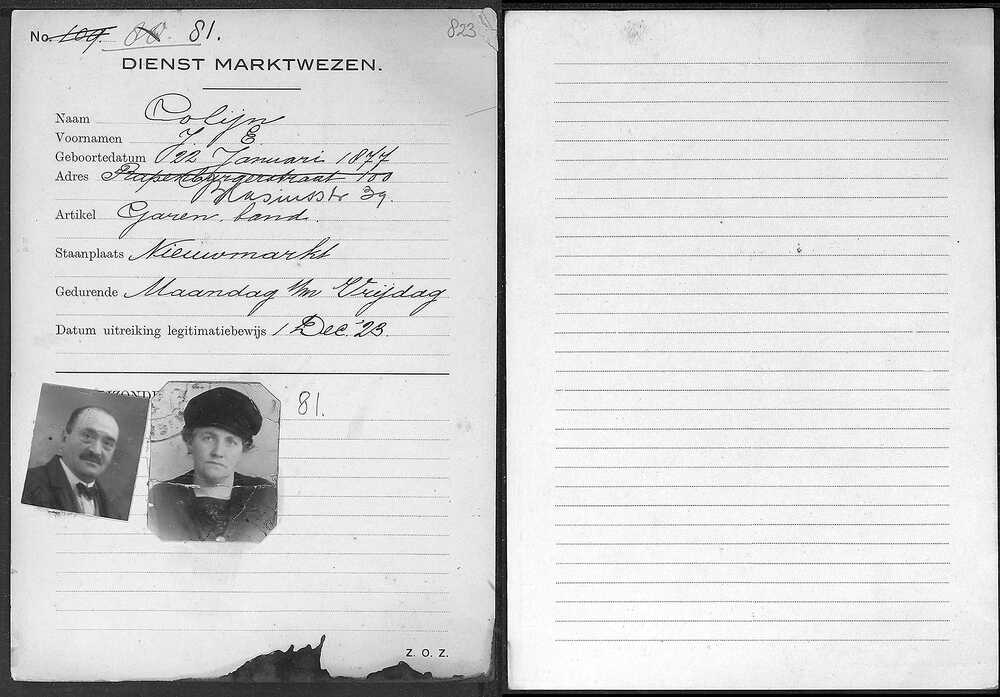 No. 109. 80. 81.
823
DIENST MARKTWEZEN.
Naam Colijn
Voornamen J. E.
Geboortedatum 22 Januari 1877
Adres Rapenburgerstraat 100
Blasiusstr 39.
Artikel Garen. band.
Staanplaats Nieuwmarkt
Gedurende Maandag t/m Vrijdag
Datum uitreiking legitimatiebewijs 1 Dec. '23.
81.
Z. O. Z.